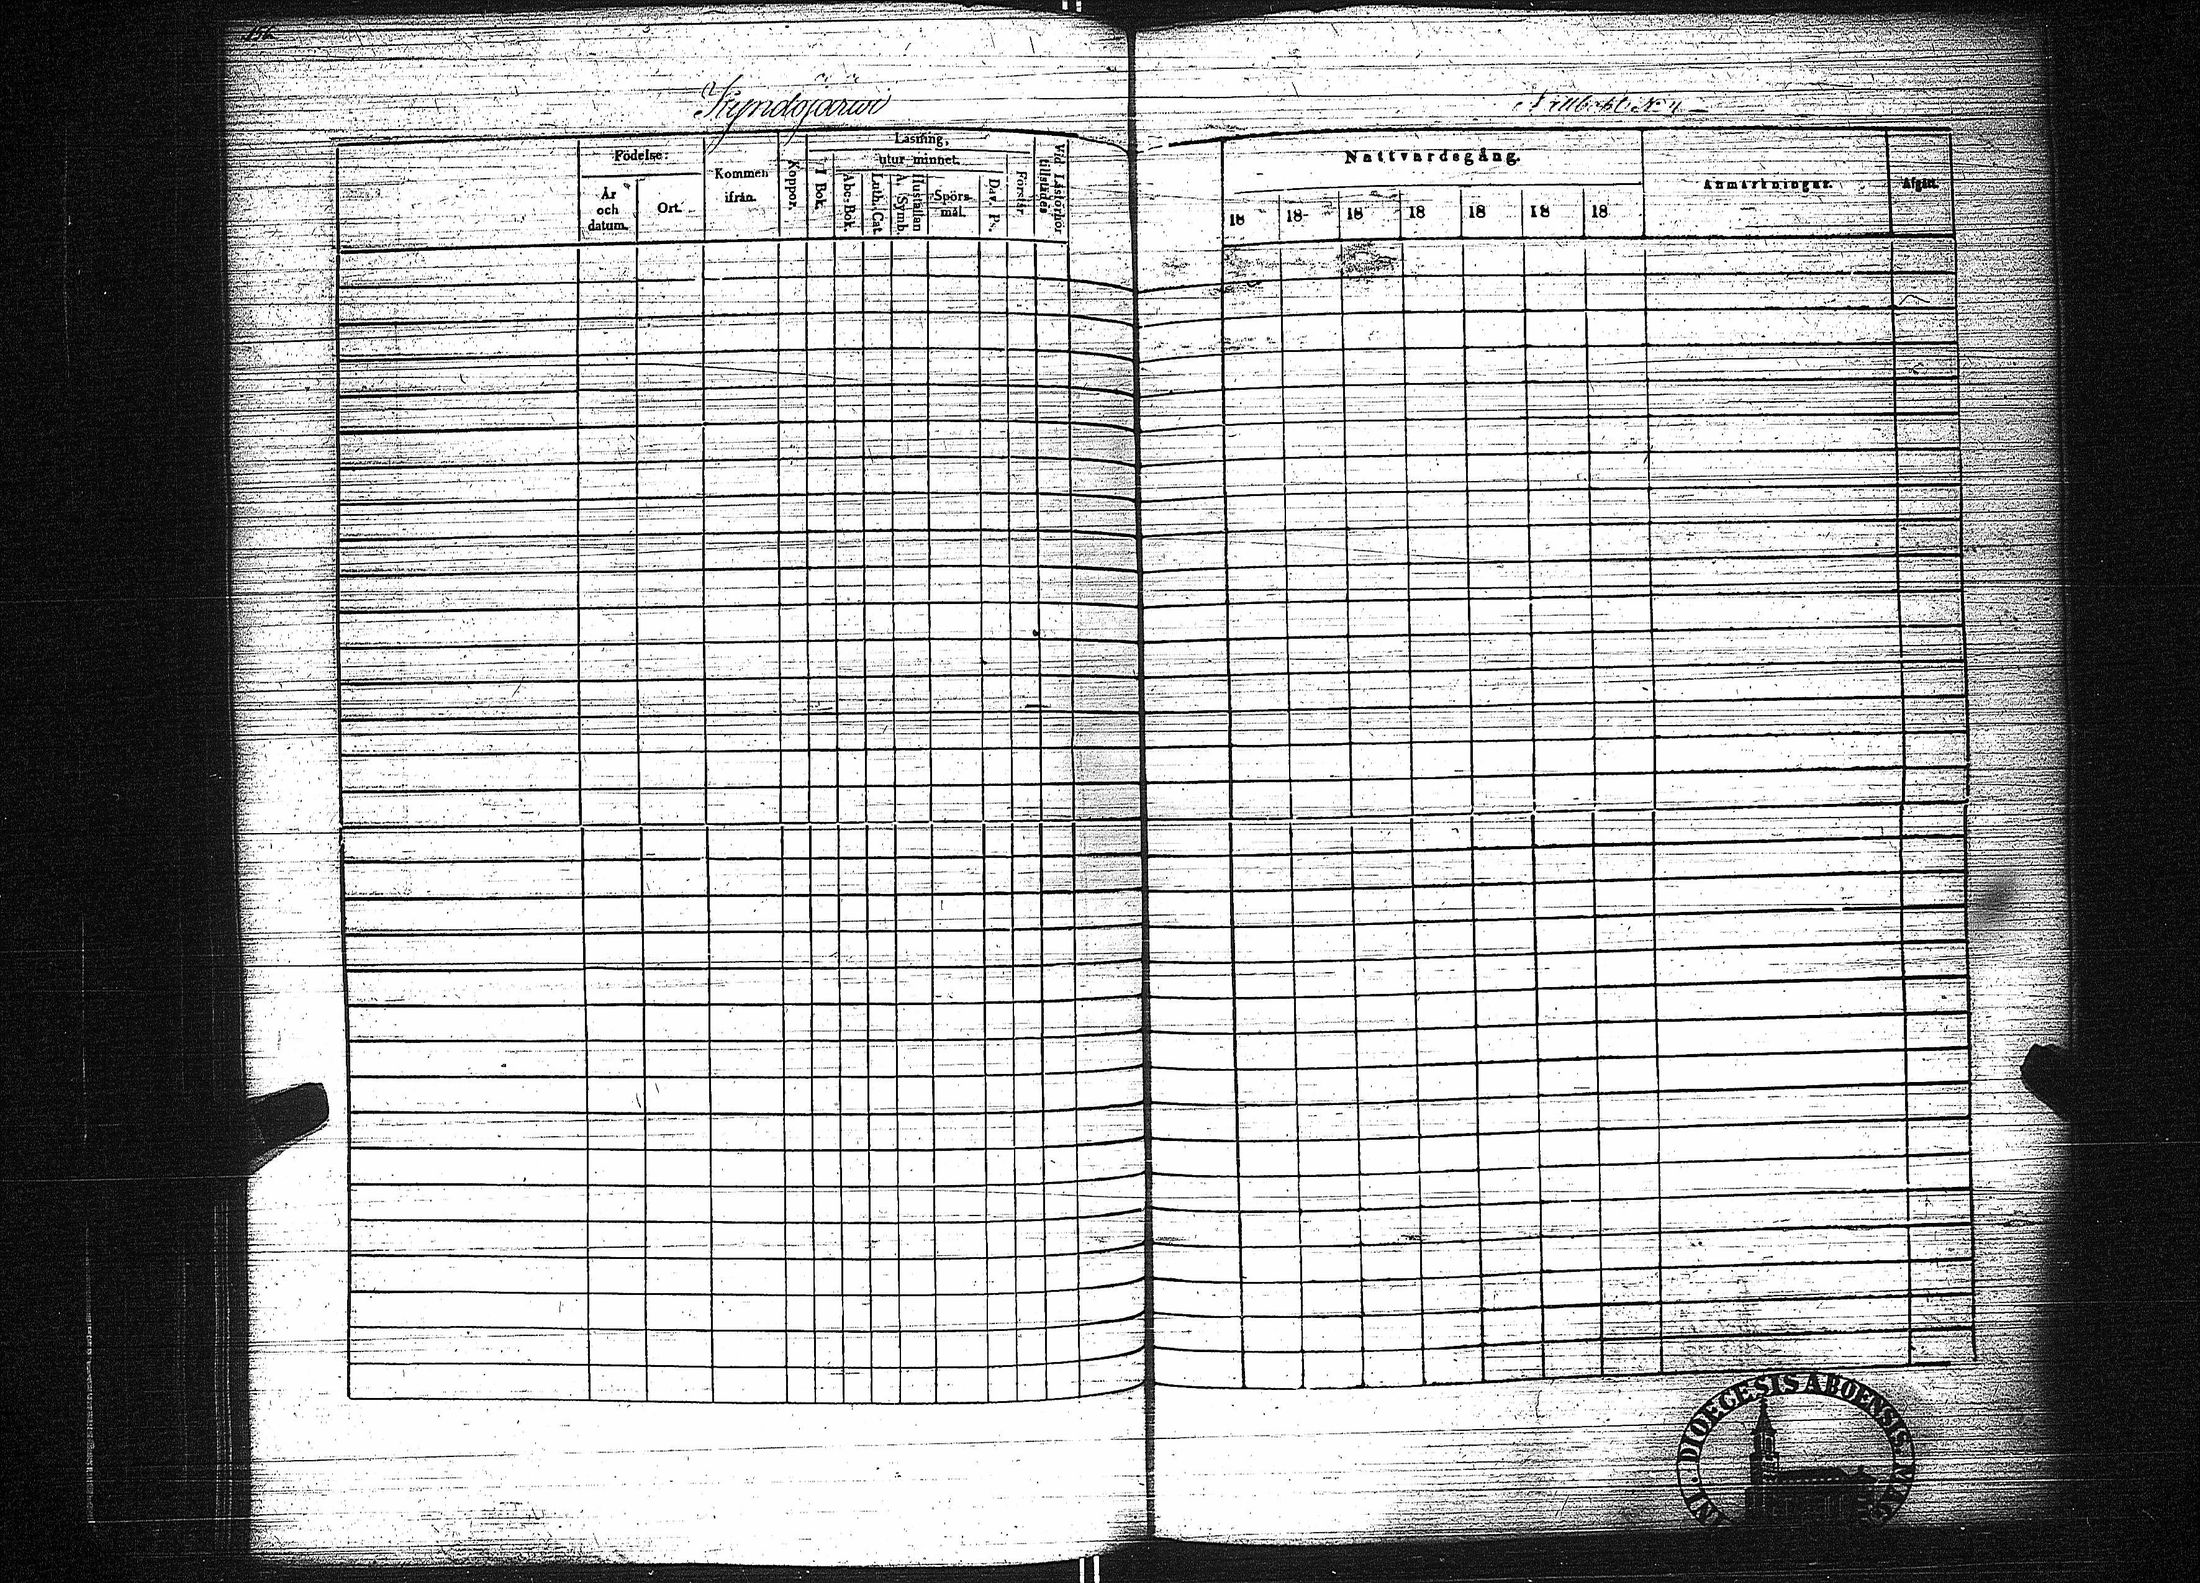 Kyndöjärwi
Födelse:
År
och
datum.
Ort.
Kommen
ifrån.
Koppor.
Läsning,
I Bok.
utur minnet.
Abc-Bok.
Luth. Cat.
Hustaflan
A. Symb.
Spörs-
mål.
Dav. Ps.
Förstår.
Vid Läsförhör
tillstädes
Nattvardsgång.
18 18 18 18 18 18 18
Anmärkningar.
Afgått.
DIOECESIS ABOENSIS.